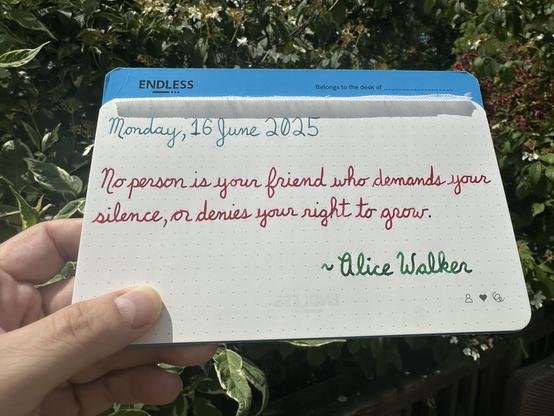 ENDLESS
Belongs to the desk of
Monday, 16 June 2025
No person is your friend who demands your
silence, or denies your right to grow.
~ Alice Walker